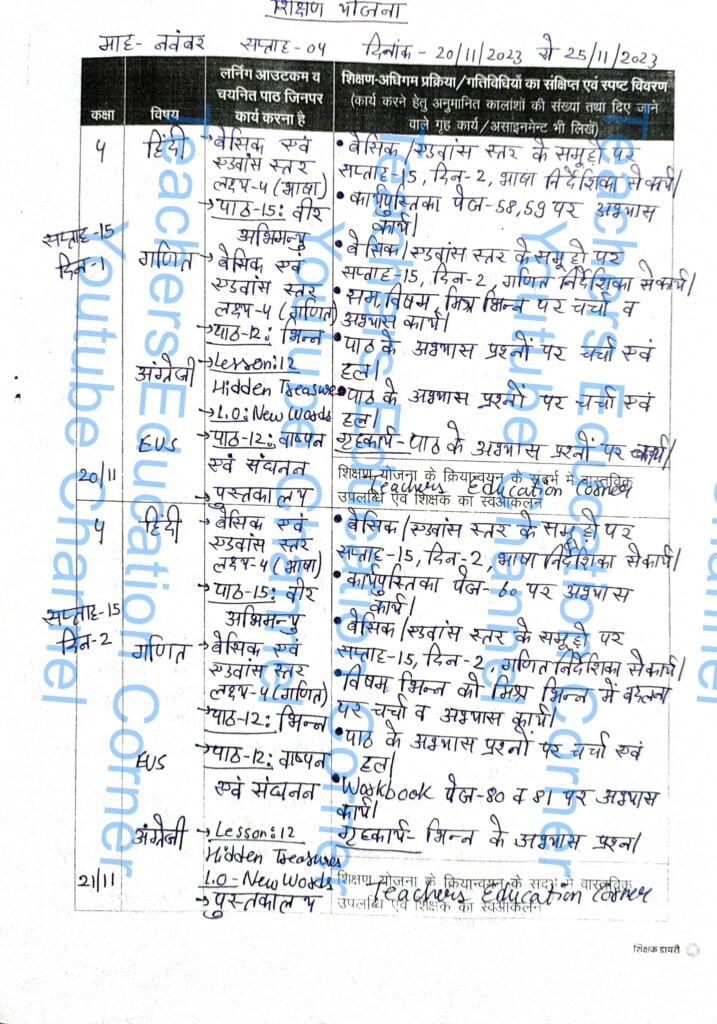 शिक्षण योजना
माह- नवंबर सप्ताह-04 दिनांक - 20/11/2023 से 25/11/2023
कक्षा
विषय
लर्निंग आउटकम व
चयनित पाठ जिनपर
कार्य करना है
शिक्षण-अधिगम प्रक्रिया/गतिविधियों का संक्षिप्त एवं स्पष्ट विवरण
(कार्य करने हेतु अनुमानित कालांशों की संख्या तथा दिए जाने
वाले गृह कार्य/असाइनमेंट भी लिखें)
५
सप्ताह-15
दिन-1
20/11
हिंदी
→ बेसिक एवं
एडवांस स्तर
लक्ष्य-५ (भाषा)
→ पाठ-15: वीर
अभिमन्यु
• बेसिक/एडवांस स्तर के समूहों पर
सप्ताह-15, दिन-2, भाषा निर्देशिका से कार्य।
• कार्यपुस्तिका पेज-58,59 पर अभ्यास
कार्य।
गणित
→ बेसिक एवं
एडवांस स्तर
लक्ष्य-५ (गणित)
→ पाठ-12: भिन्न
• बेसिक/एडवांस स्तर के समूहों पर
सप्ताह-15, दिन-2, गणित निर्देशिका से कार्य।
• सम, विषम, मिश्र भिन्न पर चर्चा व
अभ्यास कार्य।
अंग्रेजी
→ Lesson:12
Hidden Treasure
→ L.O: New Words
• पाठ के अभ्यास प्रश्नों पर चर्चा एवं
हल।
• पाठ के अभ्यास प्रश्नों पर चर्चा एवं
हल।
EVS
→ पाठ-12: वाष्पन
एवं संघनन
→ पुस्तकालय
गृहकार्य- पाठ के अभ्यास प्रश्नों पर कार्य।
शिक्षण योजना के क्रियान्वयन के सन्दर्भ में वास्तविक
उपलब्धि एवं शिक्षक का स्वआकलन
Teachers Education Corner
५
सप्ताह-15
दिन-2
21/11
हिंदी
→ बेसिक एवं
एडवांस स्तर
लक्ष्य-५ (भाषा)
→ पाठ-15: वीर
अभिमन्यु
• बेसिक/एडवांस स्तर के समूहों पर
सप्ताह-15, दिन-2, भाषा निर्देशिका से कार्य।
• कार्यपुस्तिका पेज-60 पर अभ्यास
कार्य।
गणित
→ बेसिक एवं
एडवांस स्तर
लक्ष्य-५ (गणित)
→ पाठ-12: भिन्न
• बेसिक/एडवांस स्तर के समूहों पर
सप्ताह-15, दिन-2, गणित निर्देशिका से कार्य।
• विषम भिन्न को मिश्र भिन्न में बदलना
पर चर्चा व अभ्यास कार्य।
EVS
→ पाठ-12: वाष्पन
एवं संघनन
• पाठ के अभ्यास प्रश्नों पर चर्चा एवं
हल।
• Workbook पेज-80 व 81 पर अभ्यास
कार्य।
अंग्रेजी
→ Lesson:12
Hidden Treasures
L.O- New Words
→ पुस्तकालय
गृहकार्य- भिन्न के अभ्यास प्रश्न।
शिक्षण योजना के क्रियान्वयन के सन्दर्भ में वास्तविक
उपलब्धि एवं शिक्षक का स्वआकलन
Teachers Education Corner
शिक्षक डायरी
Teachers Education Corner
Youtube Channel
Teachers Education Corner
Youtube Channel
Teachers Education Corner
Youtube Channel